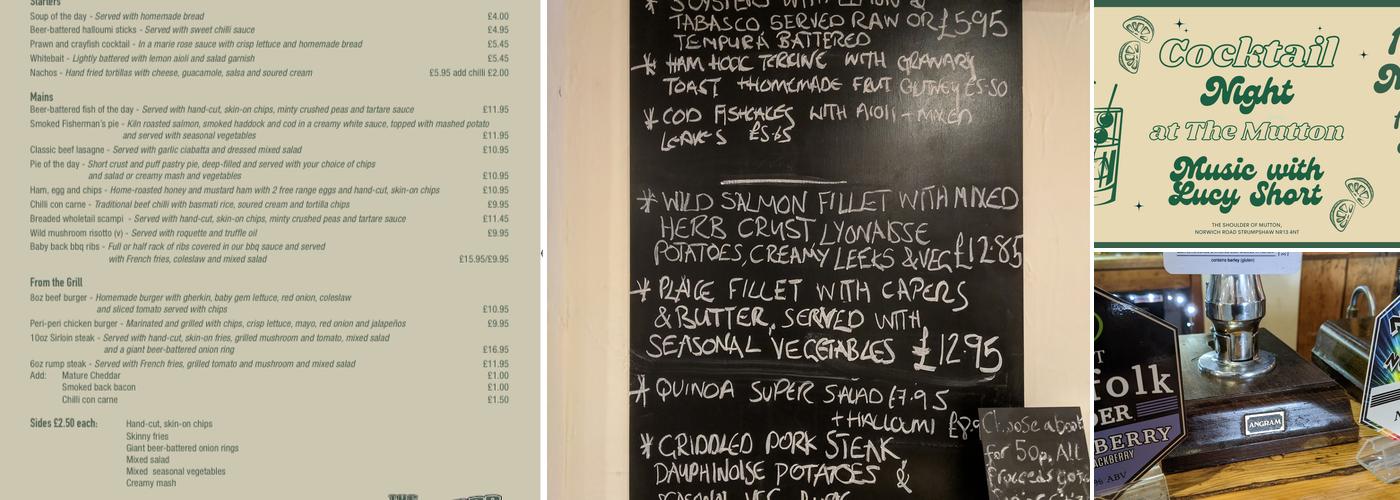 Starters
Soup of the day - Served with homemade bread £4.00
Beer-battered halloumi sticks - Served with sweet chilli sauce £4.95
Prawn and crayfish cocktail - In a marie rose sauce with crisp lettuce and homemade bread £5.45
Whitebait - Lightly battered with lemon aioli and salad garnish £5.45
Nachos - Hand fried tortillas with cheese, guacamole, salsa and soured cream £5.95 add chilli £2.00
Mains
Beer-battered fish of the day - Served with hand-cut, skin-on chips, minty crushed peas and tartare sauce £11.95
Smoked Fisherman's pie - Kiln roasted salmon, smoked haddock and cod in a creamy white sauce, topped with mashed potato
and served with seasonal vegetables £11.95
Classic beef lasagne - Served with garlic ciabatta and dressed mixed salad £10.95
Pie of the day - Short crust and puff pastry pie, deep-filled and served with your choice of chips
and salad or creamy mash and vegetables £10.95
Ham, egg and chips - Home-roasted honey and mustard ham with 2 free range eggs and hand-cut, skin-on chips £10.95
Chilli con carne - Traditional beef chilli with basmati rice, soured cream and tortilla chips £9.95
Breaded wholetail scampi - Served with hand-cut, skin-on chips, minty crushed peas and tartare sauce £11.45
Wild mushroom risotto (v) - Served with roquette and truffle oil £9.95
Baby back bbq ribs - Full or half rack of ribs covered in our bbq sauce and served
with French fries, coleslaw and mixed salad £15.95/£9.95
From the Grill
8oz beef burger - Homemade burger with gherkin, baby gem lettuce, red onion, coleslaw
and sliced tomato served with chips £10.95
Peri-peri chicken burger - Marinated and grilled with chips, crisp lettuce, mayo, red onion and jalapeños £9.95
10oz Sirloin steak - Served with hand-cut, skin-on fries, grilled mushroom and tomato, mixed salad
and a giant beer-battered onion ring £16.95
6oz rump steak - Served with French fries, grilled tomato and mushroom and mixed salad £11.95
Add: Mature Cheddar £1.00
Smoked back bacon £1.00
Chilli con carne £1.50
Sides £2.50 each: Hand-cut, skin-on chips
Skinny fries
Giant beer-battered onion rings
Mixed salad
Mixed seasonal vegetables
Creamy mash
THE
TABASCO SERVED RAW OR £5.95
TEMPURA BATTERED
* HAM HOCK TERRINE WITH GRANARY
TOAST + HOMEMADE FRUIT CUTNEY £5.50
* COD FISHCAKES WITH AIOLI + MIXED
LEAVES £5.65
* WILD SALMON FILLET WITH MIXED
HERB CRUST, LYONAISSE
POTATOES, CREAMY LEEKS & VEG £12.85
* PLAICE FILLET WITH CAPERS
& BUTTER, SERVED WITH
SEASONAL VEGETABLES £12.95
* QUINOA SUPER SALAD £7.95
+ HALLOUMI £8.9
* GRIDDLED PORK STEAK
DAUPHINOISE POTATOES &
Choose a book
for 50p. All
Proceeds Go to
Cocktail
Night
at The Mutton
Music with
Lucy Short
THE SHOULDER OF MUTTON,
NORWICH ROAD STRUMPSHAW NR13 4NT
contains barley (gluten)
folk
DER
BERRY
ACKBERRY
% ABV
ANGRAM